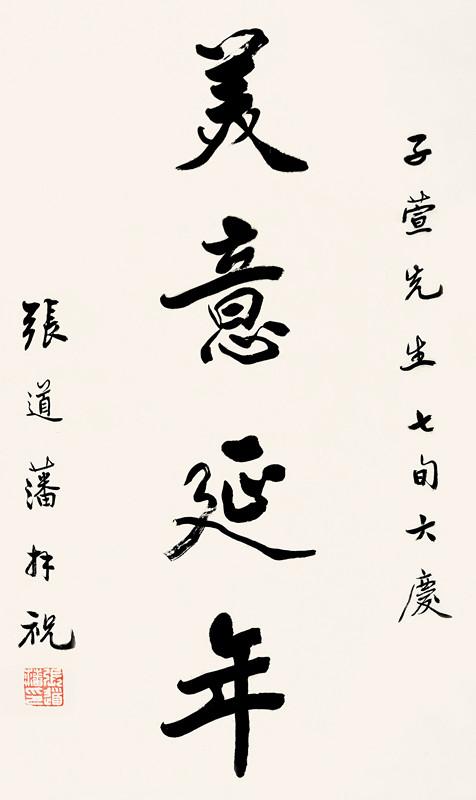 子萱先生七旬大慶
美意延年
張道藩拜祝
張道藩印